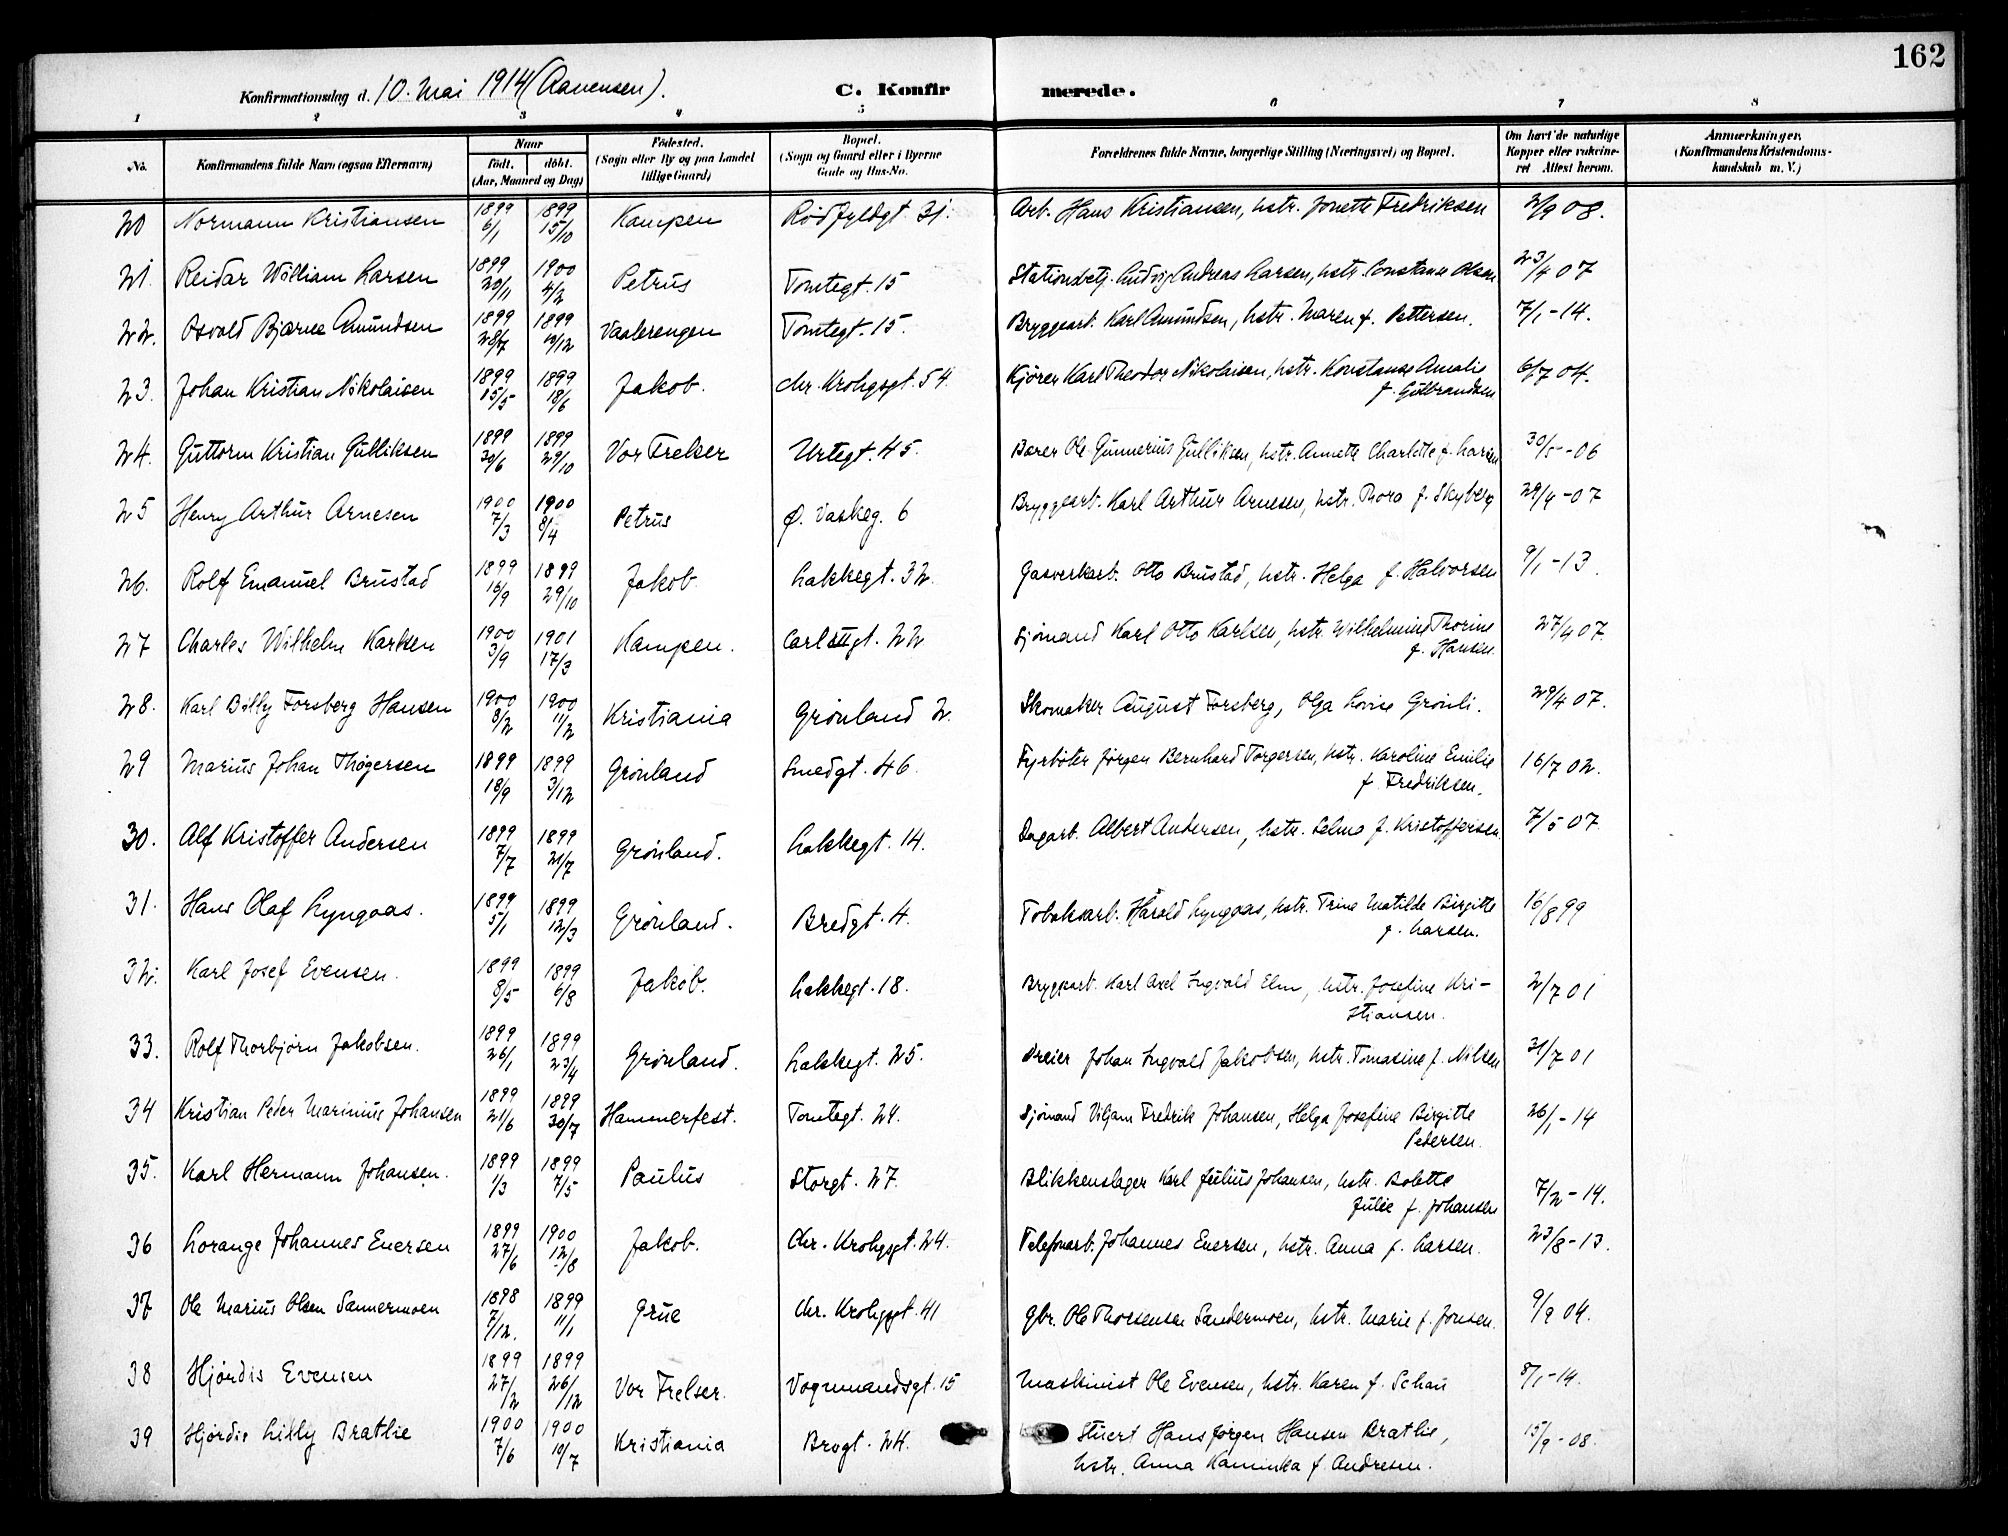 162
Konfirmationsdag d. 10. Mai 1914 (Aanensen).
C. Konfirmerede.
1 2 3 4 5 6 7 8
No. Konfirmandens fulde Navn (ogsaa Efternavn) Naar født. døbt. (Aar, Maaned og Dag) Fødested. (Sogn eller By og paa Landet tillige Gaard) Bopæl. (Sogn og Gaard eller i Byerne Gade og Hus-No. Forældrenes fulde Navne, borgerlige Stilling (Næringsvei) og Bopæl. Om havt de naturlige Kopper eller vakcineret Attest herom. Anmærkninger. (Konfirmandens Kristendomskundskab m. V.)
20 Normann Kristiansen 1899 6/1 1899 15/10 Kampen Rødfyldgt. 3j. Arb. Hans Kristiansen, hstr. Jonette Fredriksen 2/9 08.
21. Reidar William Larsen 1899 20/11 1900 4/2 Petrus Tomtegt. 15 Stationsbetj. Ludvig Andreas Larsen, hstr. Constance Olsen 23/4 07
22. Osvald Bjarne Amundsen 1899 28/7 1899 /12 Vaalerengen Tomtegt. 15. Bryggearb. Karl Amundsen, hstr. Maren f. Pettersen. 7/1-14.
23. Johan Kristian Nikolaisen 1899 15/5 1899 18/6 Jakob. Chr. Krohgsgt. 54. Kjører Karl Theodor Nikolaisen, hstr. Konstanse Amalie
f. Gulbrandsen 6/7 04.
24. Guttorm Kristian Gulliksen 1899 30/6 1899 29/10 Vor Frelser Urtegt. 45. Bærer Ole Gunnerius Gulliksen, hstr. Annette Charlotte f. Larsen 30/5-06
25 Henry Arthur Arnesen 1900 7/3 1900 8/4 Petrus Ø. Vaskeg. 6 Bryggearb. Karl Arthur Arnesen, hstr. Thora f. Skyberg 29/4-07
26. Rolf Emanuel Brustad 1899 16/9 1899 29/10 Jakob Lakkegt. 32. Gasverkarb. Otto Brustad, hstr. Helga f. Halvorsen 9/1-13.
27 Charles Wilhelm Karlsen 1900 3/9 1901 17/3 Kampen. Carl XII gt. 22 Sjømand Karl Otto Karlsen, hstr. Wilhelmine Thorine
f. Hansen. 27/4 07.
28. Karl Billy Forsberg Hansen 1900 3/2 1900 11/2 Kristiania Grønland 2. Skomaker August Forsberg, Olga Lovise Grønli. 29/4 07.
29 Marius Johan Thøgersen 1899 18/9 1899 3/12 Grønland Smedgt. 46. Fyrbøter Jørgen Bernhard Torgersen, hstr. Karoline Emilie
f. Fredriksen. 16/7 02.
30. Alf Kristoffer Andersen 1899 7/7 1899 21/7 Grønland. Lakkegt. 14. Dagarb. Albert Andersen, hstr. Selma f. Kristoffersen. 7/5 07.
31. Hans Olaf Lyngaas. 1899 5/1 1899 12/3 Grønland. Bredgt. 4. Tobaksarb. Harald Lyngaas, hstr. Trine Matilde Birgitte
f. Larsen. 16/8 99
32. Karl Josef Evensen. 1899 8/5 1899 6/8 Jakob. Lakkegt. 18. Bryggearb. Karl Axel Ingvald Elm, hstr. Josefine Kri-
stiansen. 2/7 01
33. Rolf Thorbjørn Jakobsen. 1899 26/1 1899 23/4 Grønland. Lakkegt. 25. Dreier Johan Ingvald Jakobsen, hstr. Tomasine f. Nilsen 31/7 01
34 Kristian Peder Marinius Johansen 1899 21/6 1899 30/7 Hammerfest. Tomtegt. 24. Sjømand Viljam Fredrik Johansen, Helga Josefine Birgitte
Pedersen. 26/1-14
35. Karl Hermann Johansen. 1899 1/3 1899 7/5 Paulus Storgt. 27. Blikkenslager Karl Julius Johansen, hstr. Bolette
Julie f. Johansen 7/2-14.
36 Lorange Johannes Enersen 1899 27/6 1900 12/8 Jakob. Chr. Krohgsgt. 24. Telefonarb. Johannes Enersen, hstr. Anna f. Larsen. 23/8-13.
37 Ole Marius Olsen Sannermoen 1898 7/12. 1899 11/1 Grue Chr. Krohgsgt. 41 Gbr. Ole Thorsensen Sandermoen, hstr. Marie f. Jonsen. 9/9 04.
38 Hjørdis Evensen 1899 27/2 1899 26/12 Vor Frelser. Vognmandsgt. 15 Maskinist Ole Evensen, hstr. Karen f. Schau 8/1-14.
39 Hjørdis Lilly Bratlie 1900 7/6 1900 10/7 Kristiania Brogt. 24. Stuert Hans Jørgen Hansen Bratlie,
hstr. Anna Kaminka f. Andresen. 15/9-08.